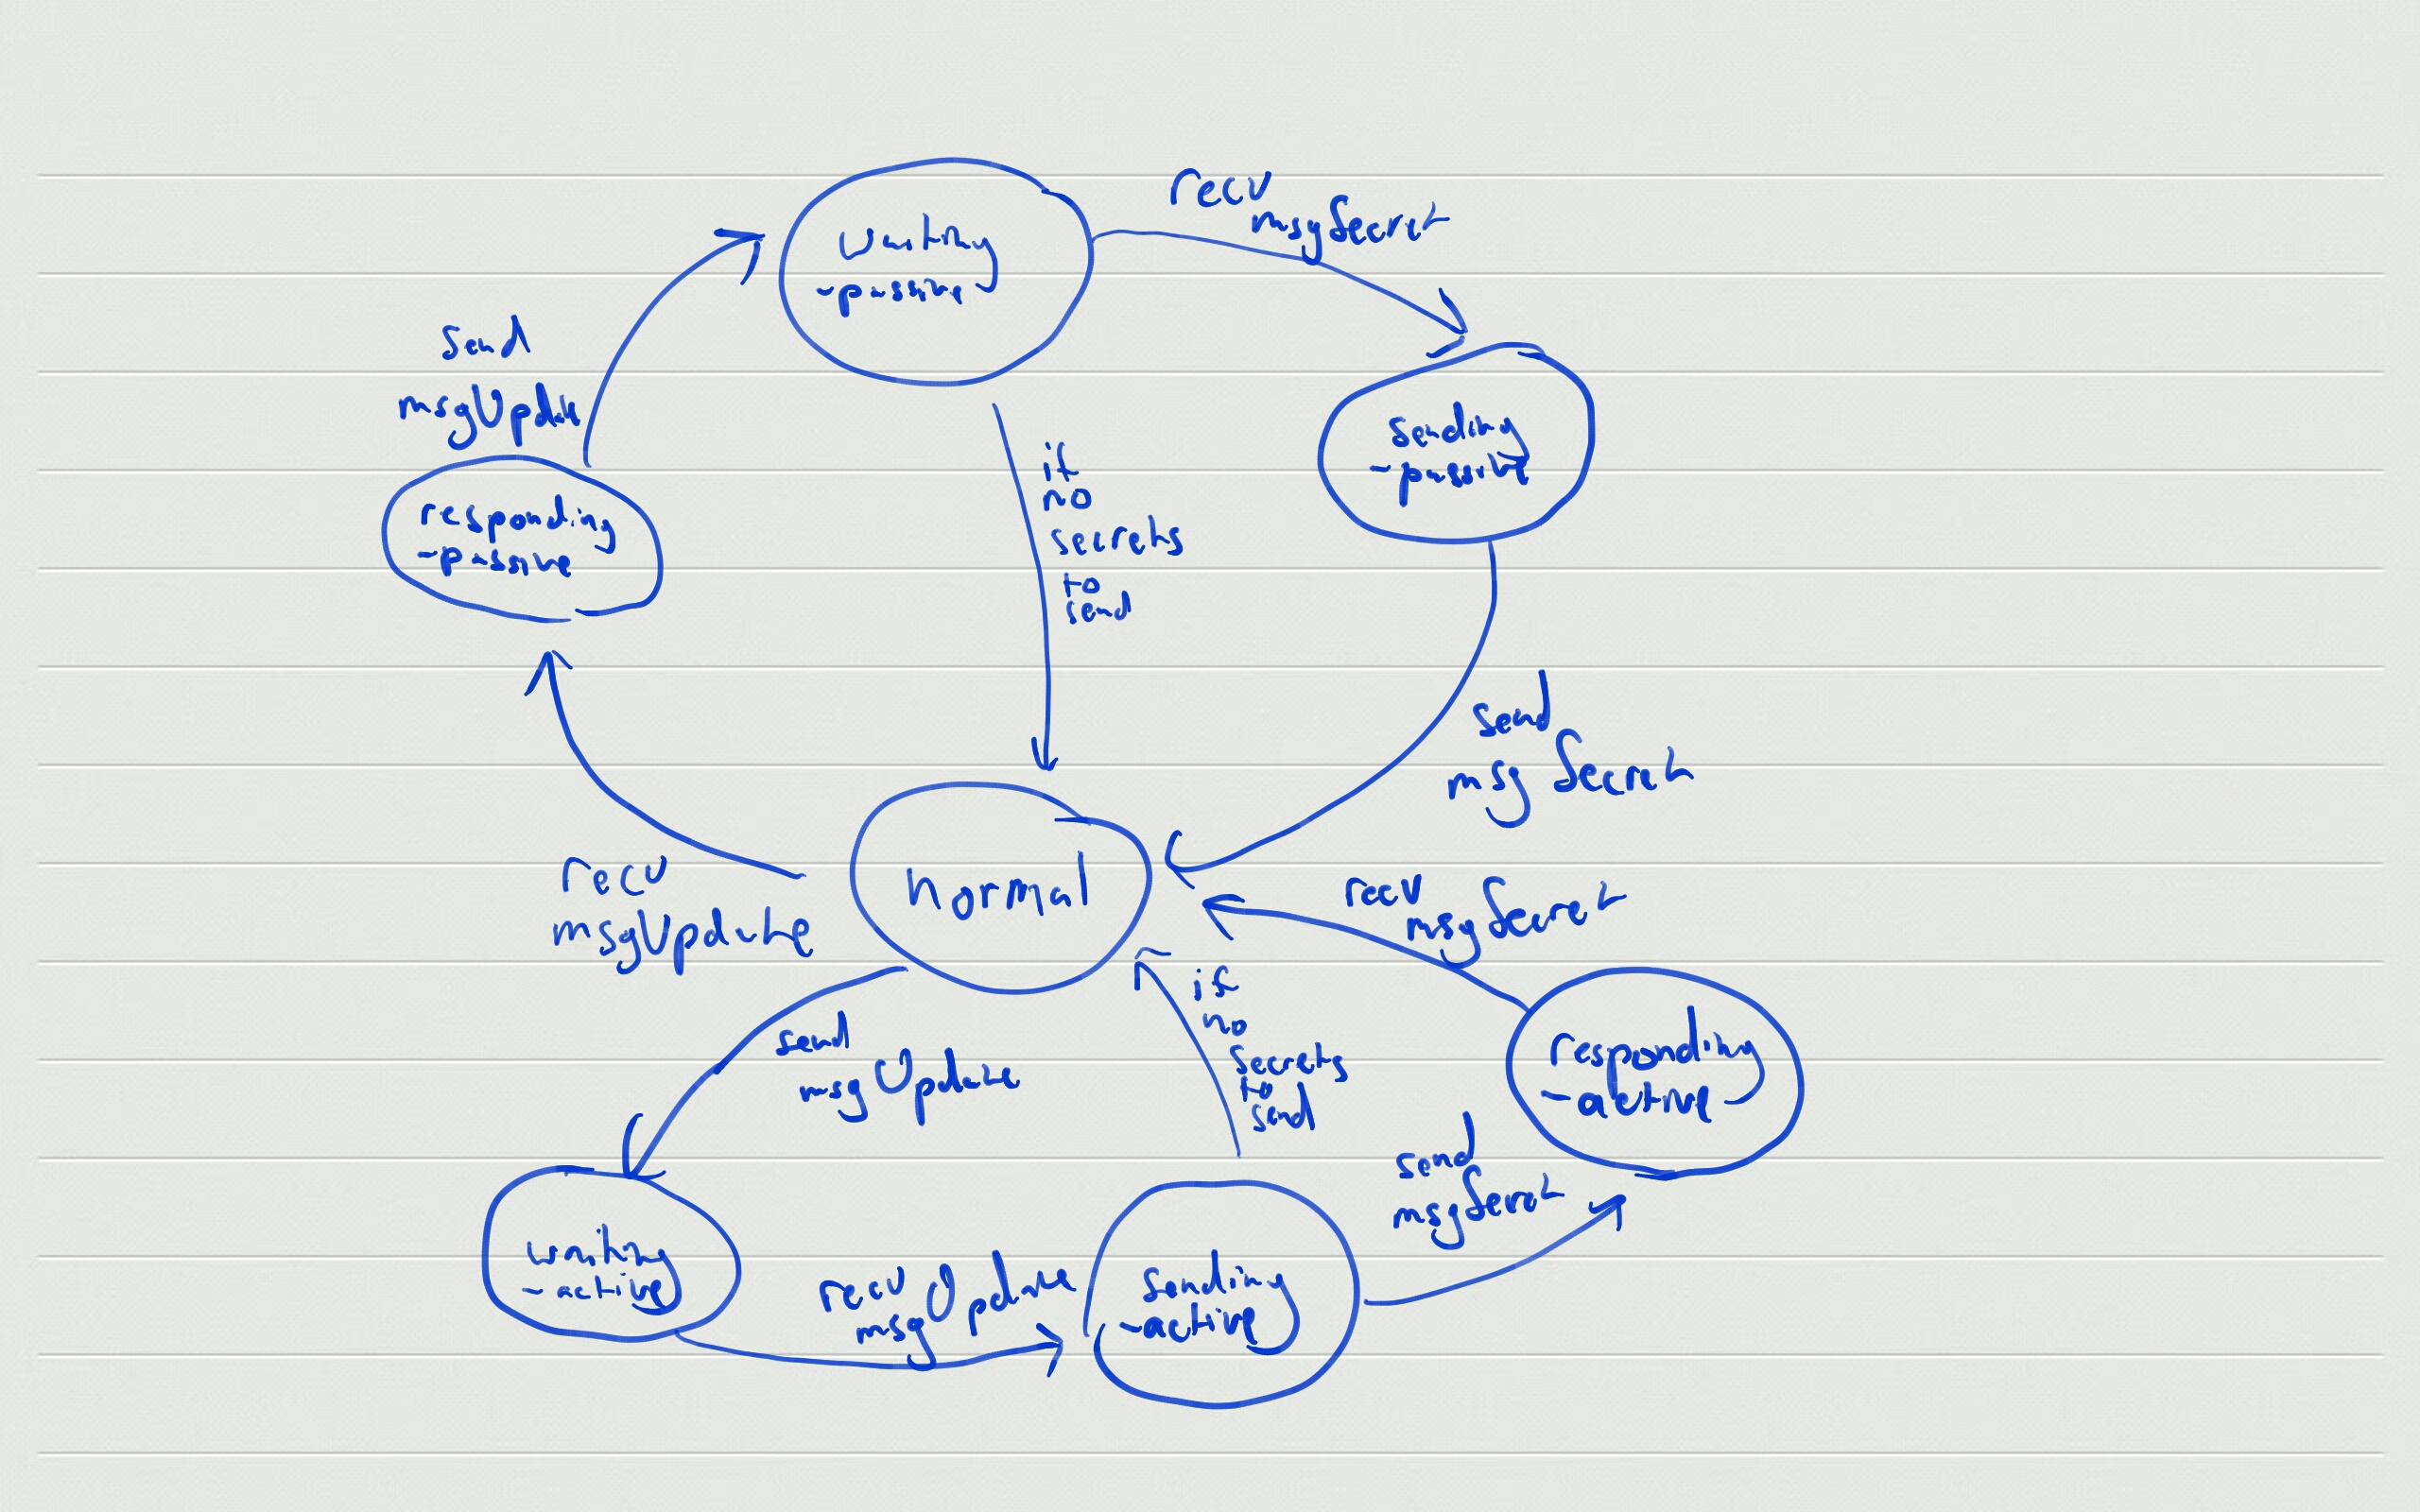 recv
msgSecret
waiting
-passive
send
msgUpdate
sending
-passive
if
no
secrets
to
send
responding
-passive
send
msgSecret
normal
recv
msgUpdate
recv
msgSecret
if
no
secrets
to
send
send
msgUpdate
responding
-active
send
msgSecret
waiting
-active
recv
msgUpdate
sending
-active